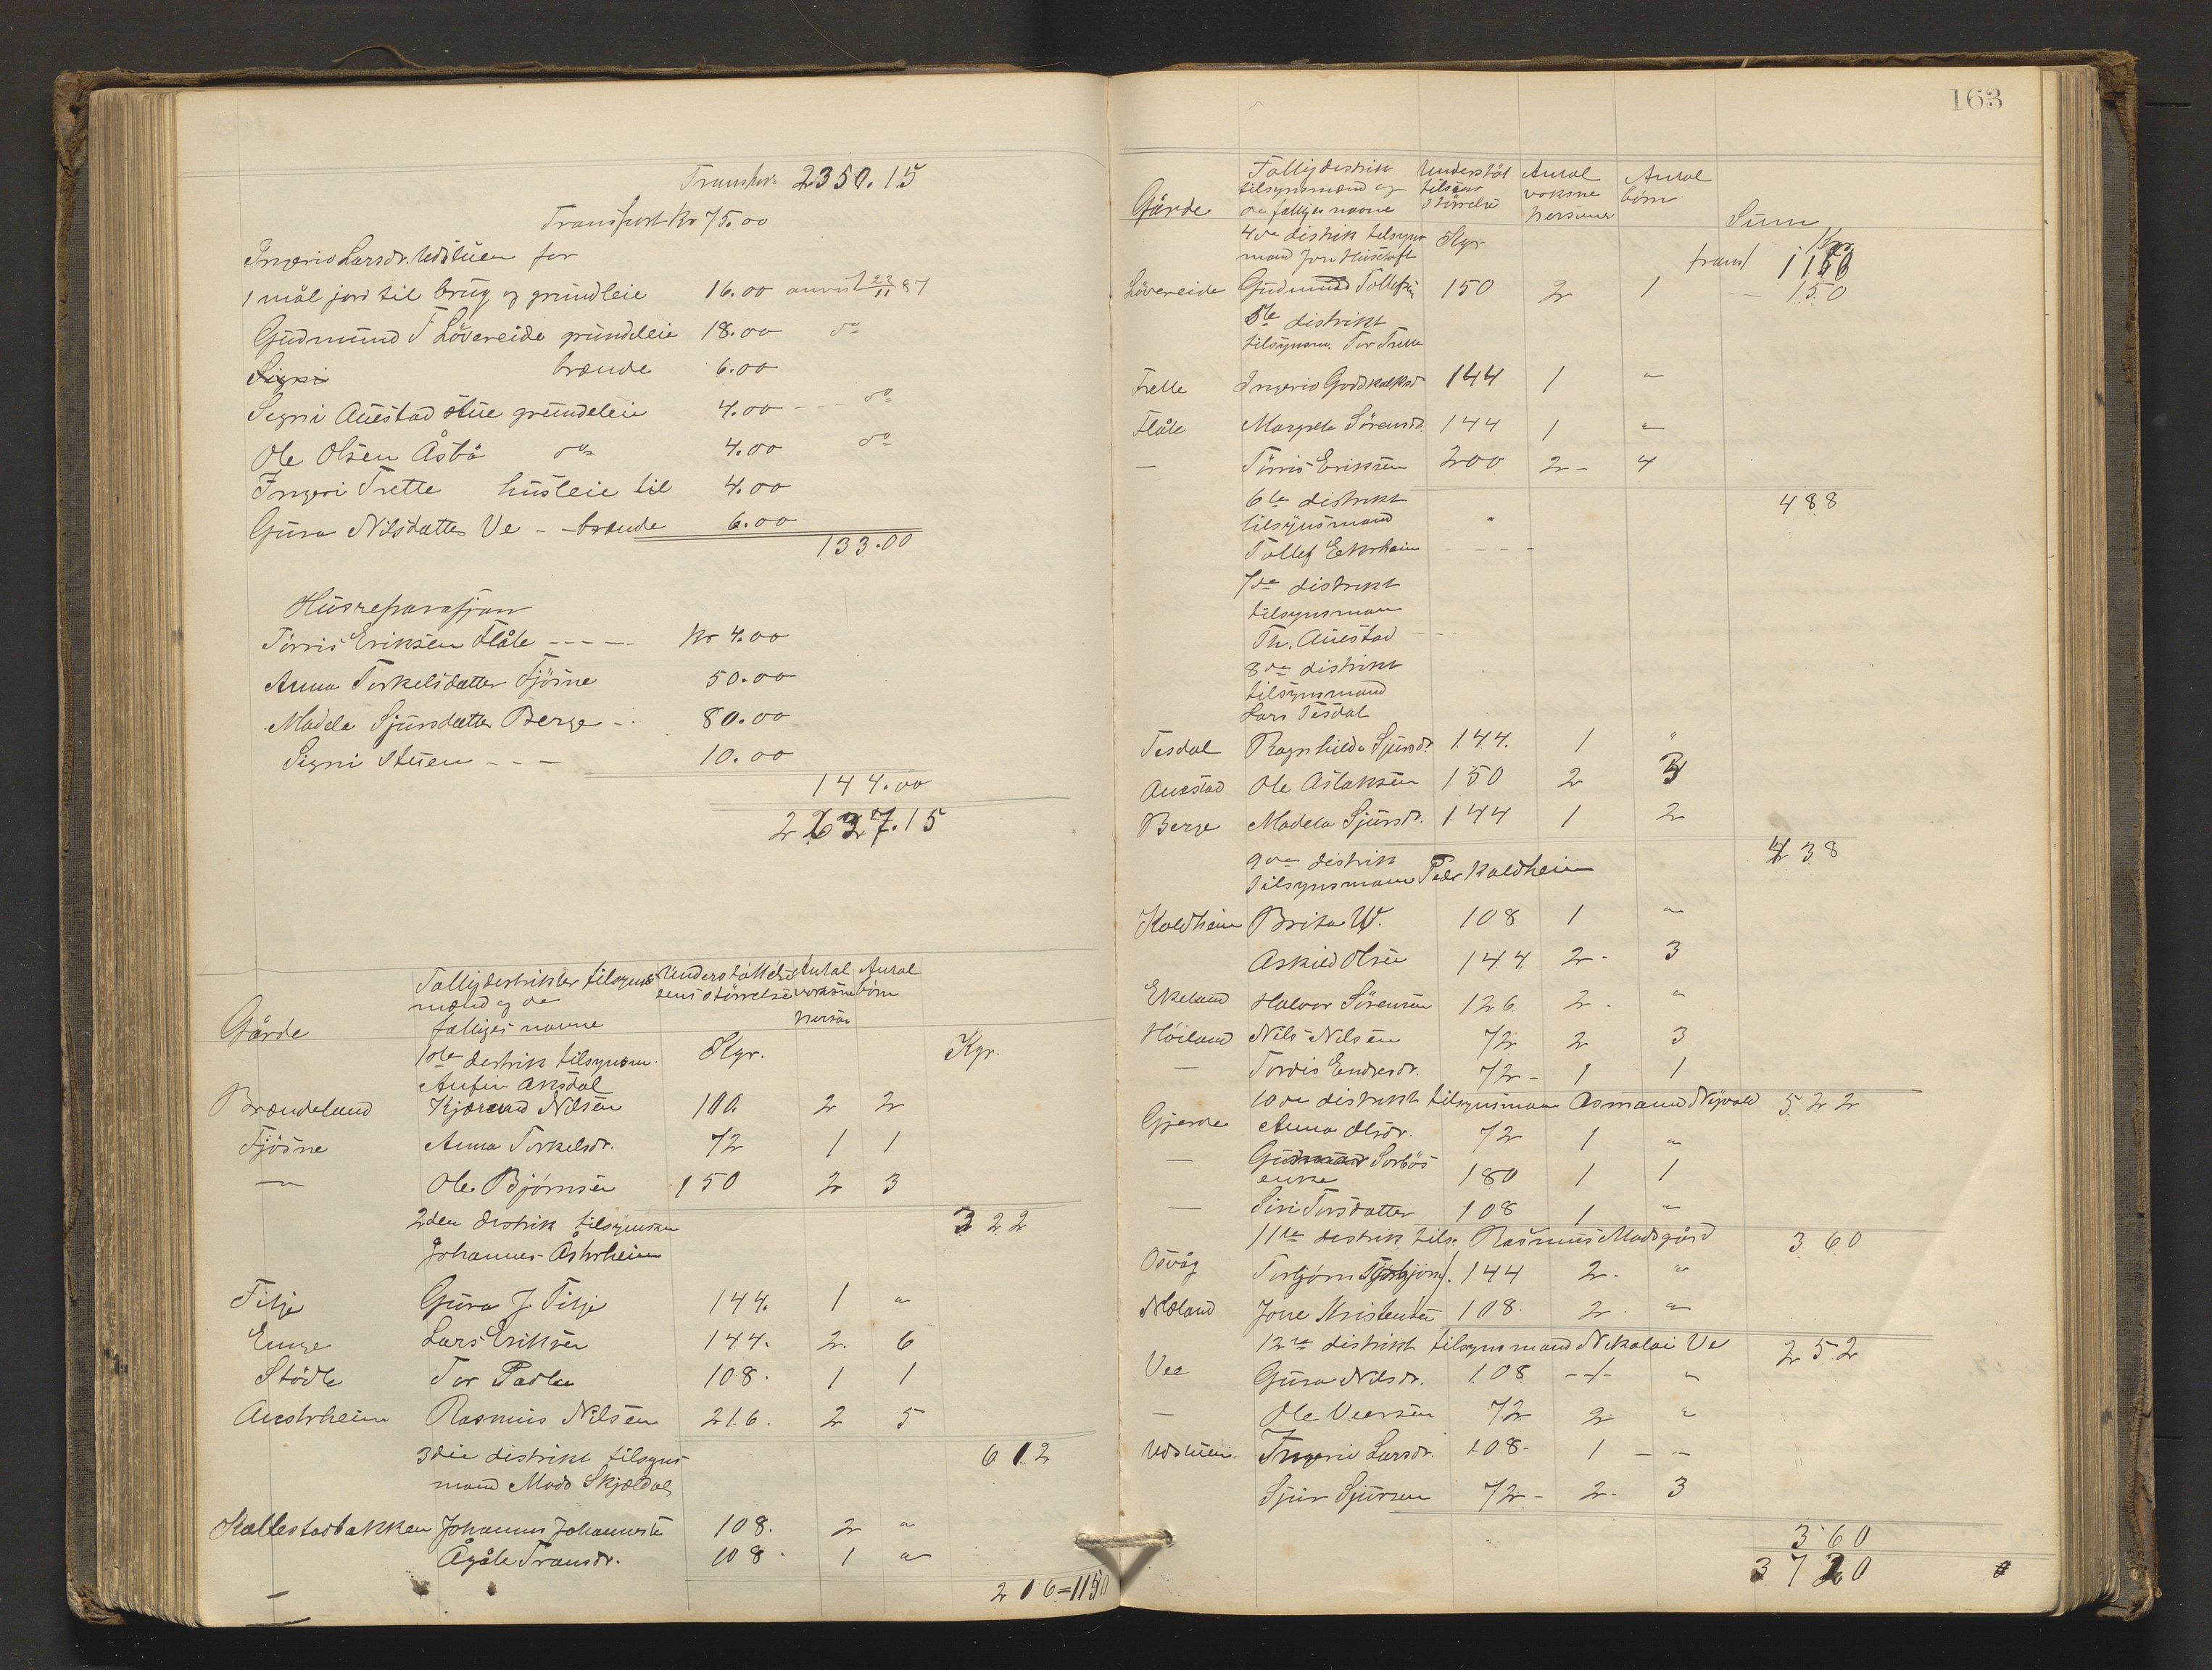 Transport 2350.15
Transport Kr 75.00
Ingerid Larsdr. Udstuen for
1 mål jord til brug og grundleie 16.00 anvist 22/11 87
Gudmund T Lövereide grundleie 18.00 do
Signi brænde 6.00
Signi Auestad stue grundeleie 4.00 - - - do
Ole Olsen Åsbö do 4.00 do
Ingeri Trette husleie til 4.00
Gura Nilsdatter Ve - - brænde 6.00
133.00
Husreparasjon
Törris Eriksen Flåte - - - - Kr 4.00
Anna Torkelsdatter Fjösne 50.00
Madela Sjursdatter Berge - . 80.00
Signi Stuen - - - 10.00
144.00
2627.15
Gårde Fattigdestrikter tilsyns Understöttel Antal Antal
mænd og de sens störrelse voksne börn
fattiges navne person
1ste destrik tilsynsm. Kgr. Kgr.
Anfin Aksdal
Brændeland Kjærand Nilsen 100. 2 2
Fjösne Anna Torkelsdr. 72 1 1
— Ole Bjørnsen 150 2 3
2den destrik tilsynsman 322
Johannes Åstrheim
Tilje Gura J. Tilje 144. 1 "
Enge Lars Eriksen 144. 2. 6
Stödle Tor Padlen 108. 1 1
Austrheim Rasmus Nilsen 216. 2 5
3die distrikt tilsyns 612
mand Mads Skjældal
Hallestadbakken Johannes Johannesen 108. 2 "
Ågåte Transdr. 108. 1 "
216=1150
163
Gårde Fattigdestrik Understöt Antal Antal
tilsynsmænd og telsens voksne börn
de fattiges navne störrelse personer Sum
4de distrik tilsyns Kgr. Kgr
mand Jon Huustoft transp 1150
Lövereide Gudmund Tollefsen 150 2 1 - - 150
5te distrikt
tilsynsm. Tor Trette
Trette Ingerid Godskalksd 144 1 "
Flåte Margreta Sörensd. 144 1 "
— Törris Eriksen 200 2 - 4
6te distrikt 488
tilsynsmand
Tollef Eekrheim - - - -
7de distrikt
tilsynsman
Th. Auestad - - -
8de distrikt
tilsynsmand
Lars Tesdal
Tesdal Ragnhilda Sjursdr. 144. 1 "
Auestad Ole Aslaksen 150 2 3
Berge Madela Sjursdr. 144 1 2
9de distrik 438
tilsynsmann Peder Kaldheim
Kaldheim Brita W. 108 1 "
Askild Olsen 144 2 - 3
Ekeland Halvor Sörensen 126 2 . "
Höiland Nils Nilsen 72 2 3
— Tordis Endresdr. 72 - 1 1
10de distrikt tilsynsmann Asmund Nyvold 522
Gjerde Anna Olsdr. 72 1 "
— Gudmund Sorbös
enke 180 1 1
— Siri Torsdatter 108 1 "
11te destrik tils. Rasmus Madsgård 360
Osvåg Torbjørn Torbjörns. 144 2. "
Mæland Jone Kristensen 108. 2. "
12te distrikt tilsynsmand Nikolai Ve 252
Vee Gura Nilsdr. 108 - 1 - "
— Ole Veersen 72 2 "
Udstuen Ingerid Larsdr. 108 - 1 - "
Sjur Sjursen 72 - 2 - 3
360
3720